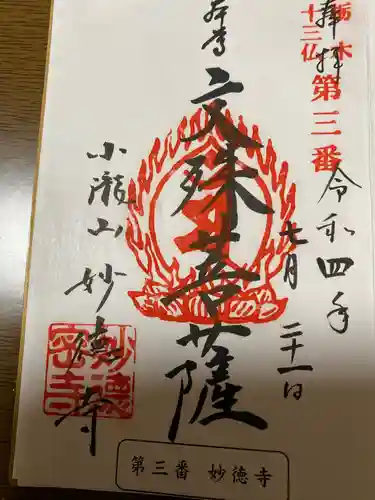 奉拝
栃木
十三仏
第三番
令和四年
七月二十一日
本尊
文殊菩薩
小瀧山妙徳寺
第三番 妙徳寺